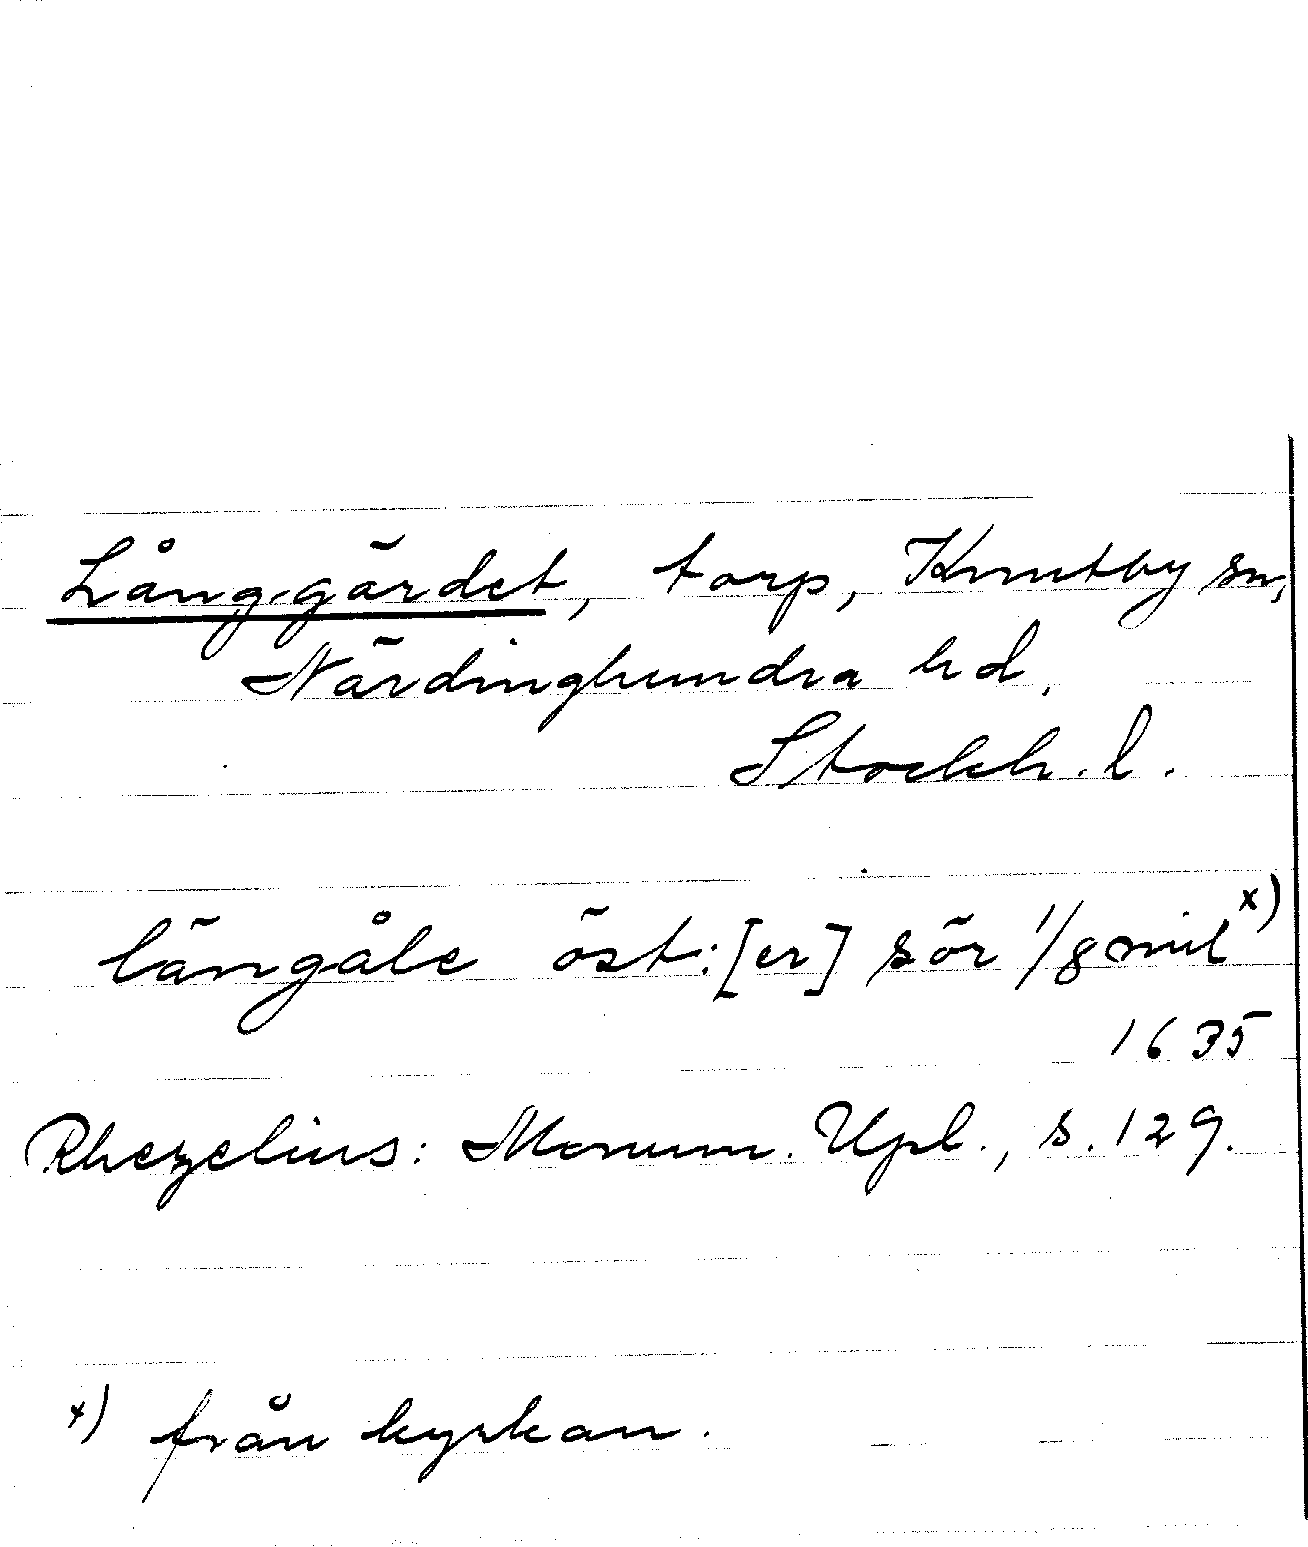 Långgärdet, torp, Knutby sn,
Närdinghundra hd,
Stockh. l.
längåle öst:[er] sör 1/8 mil x)
1635
Rhezelius: Monum. Upl., s. 129.
x) från kyrkan.